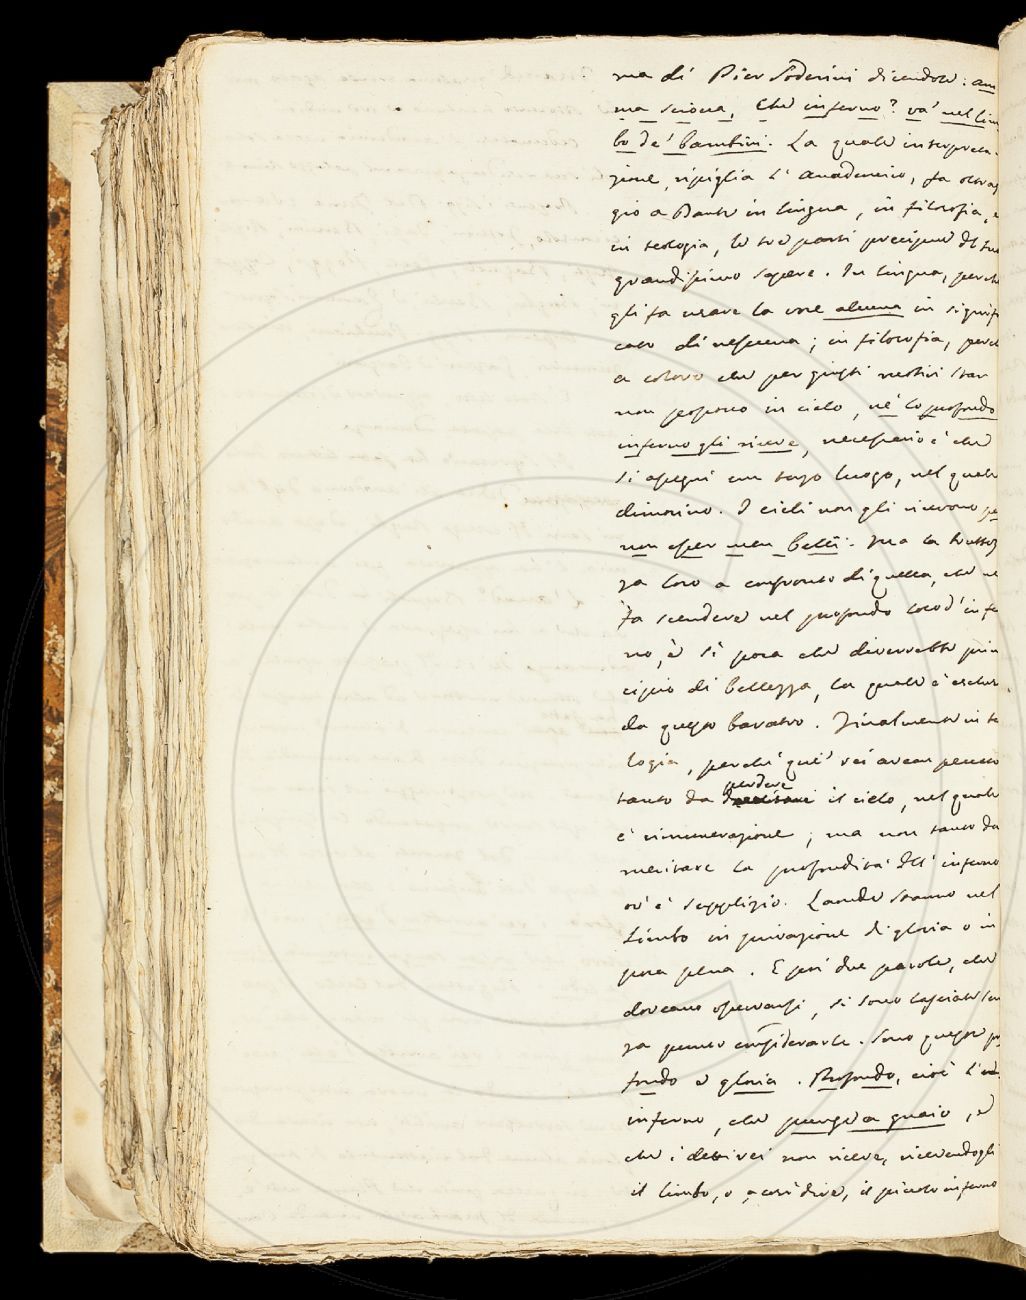 ma di Pier Soderini dicendole: ani
ma sciocca, che inferno? va' nel lim
bo de' bambini. La quale interpreta-
zione, ripiglia l' accademico, fa oltrag
gio a Dante in lingua, in filosofia, e
in teologia, le tre parti precipue del suo
grandissimo sapere. In lingua, perchè
gli fa usare la voce alcuna in signifi
cato di nessuna; in filosofia, perchè
a coloro che per giusti motivi star
non possono in cielo, nè lo profondo
inferno gli riceve, necessario è che
si assegni un terzo luogo, nel quale
dimorino. I cieli non gli ricevono per
non esser men belli. Ma la bruttez
za loro a confronto di quella, che ne
fa scendere nel profondo loco d' infer
no, è sì poca che diverrebbe prin
cipio di bellezza, la quale è esclusa
da questo baratro. Finalmente in teo
logia, perchè que' rei avean peccato
tanto da perdere il cielo, nel quale
è rimunerazione; ma non tanto da
meritare la profondità dell' inferno
ov' è supplizio. Laonde stanno nel
Limbo in privazione di gloria o in
poca pena. E poi due parole, che
doveano osservarsi, si sono lasciate sen
za punto considerarle. Sono queste pro
fondo e gloria. Profondo, cioè l'
inferno, che punge a guaio, e
che i rei non riceve, ricevendogli
il limbo, o a così dire, il piccolo inferno